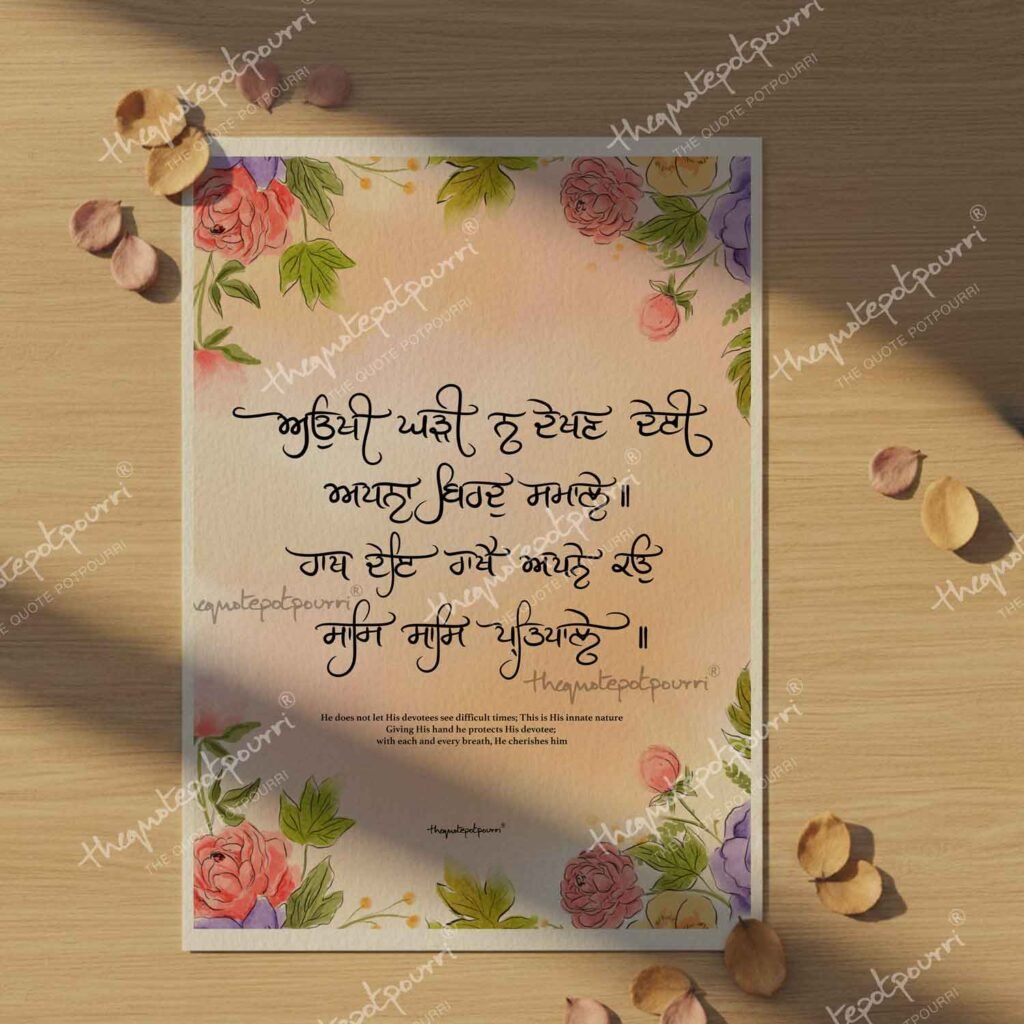 thequotepotpourri®
THE QUOTE POTPOURRI
thequotepotpourri
THE QUOTE POTPOURRI
thequotepotpourri®
THE QUOTE POTPOURRI
thequotepotpourri®
THE QUOTE POTPOURRI
ਅਉਖੀ ਘੜੀ ਨ ਦੇਖਣ ਦੇਈ
ਅਪਨਾ ਬਿਰਦੁ ਸਮਾਲੇ॥
ਹਾਥ ਦੇਇ ਰਾਖੈ ਅਪਨੇ ਕਉ
ਸਾਸਿ ਸਾਸਿ ਪ੍ਰਤਿਪਾਲੇ ॥
thequotepotpourri®
He does not let His devotees see difficult times; This is His innate nature
Giving His hand he protects His devotee;
with each and every breath, He cherishes him
thequotepotpourri®
thequotepotpourri®
THE QUOTE POTPOURRI
thequotepotpourri®
THE QUOTE POTPOURRI